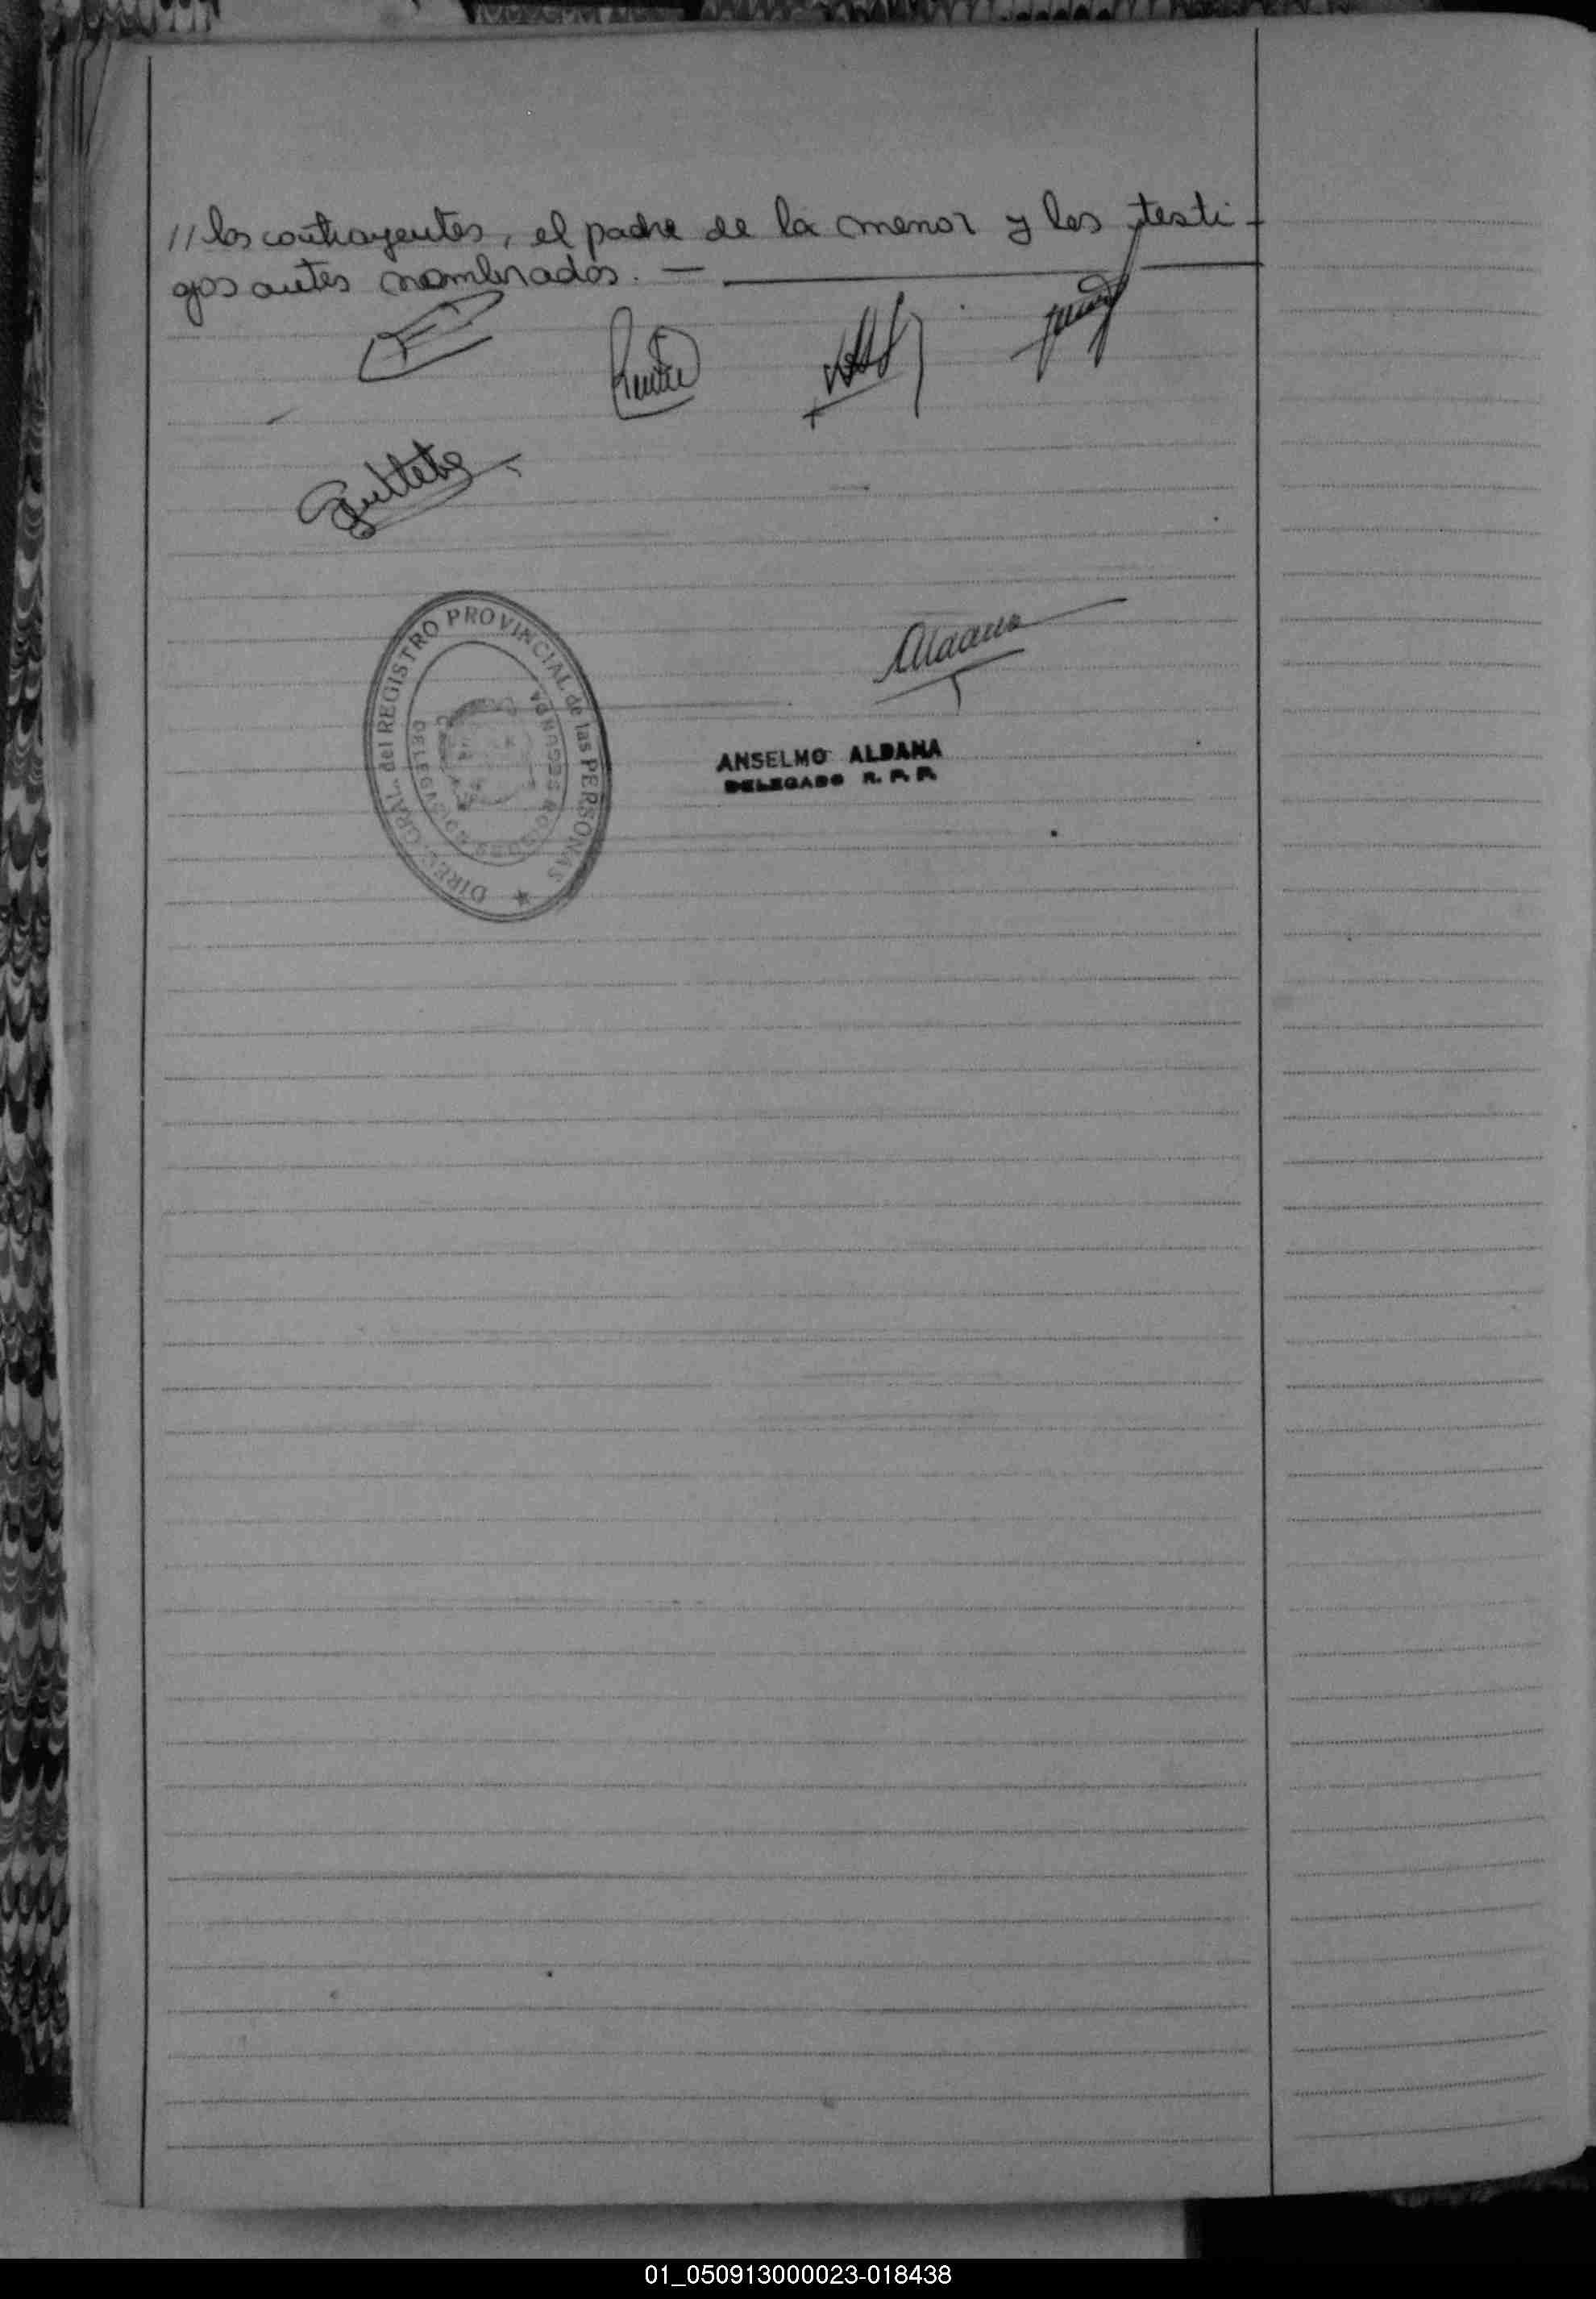 // los contrayentes, el padre de la menor y los testi-
gos antes nombrados. —
Aldana
DIREC. GRAL. del REGISTRO PROVINCIAL de las PERSONAS
DELEGACION SEGUNDA
ANSELMO ALDANA
DELEGADO R. P. P.
01_050913000023-018438